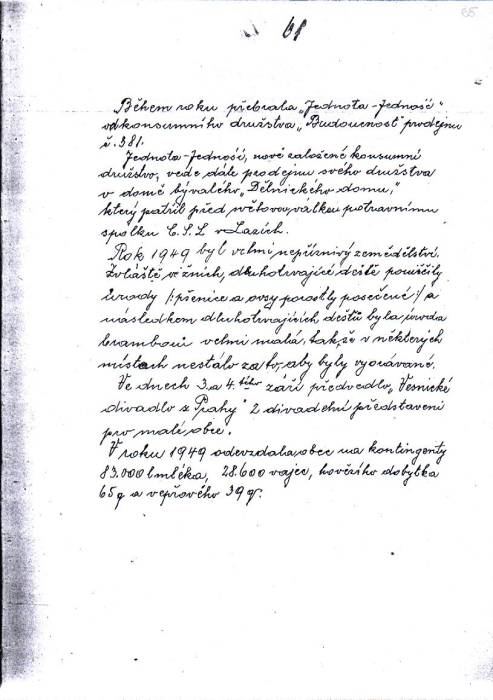 65
68
Během roku přebrala „Jednota-Jedność"
od konsumního družstva „Budoucnost" prodejnu
č. 381.
Jednota-Jedność, nově založené konsumní
družstvo, vede dále prodejnu svého družstva
v domě bývalého „Dělnického domu,"
který patřil před světovou válkou potravnímu
spolku Č.S.L. v Lazích.
Rok 1949 byl velmi nepříznivý zemědělství.
Zvláště ve žních, dluhotrvající deště poničily
úrody /: pšenice a ovsy porostly posečené :/ a
následkem dluhotrvajících dešťů byla úroda
bramborů velmi malá, tak, že v některých
místach nestálo za to, aby byly vyorávané.
Ve dnech 3. a 4. tého září předvedlo „Vesnické
divadlo z Prahy" 2 divadelní představení
pro malé, obec.
V roku 1949 odevzdala, obec na kontingenty
83.000 l mléka, 28.600 vajec, hovězího dobytka
65 q a vepřového 39 q.